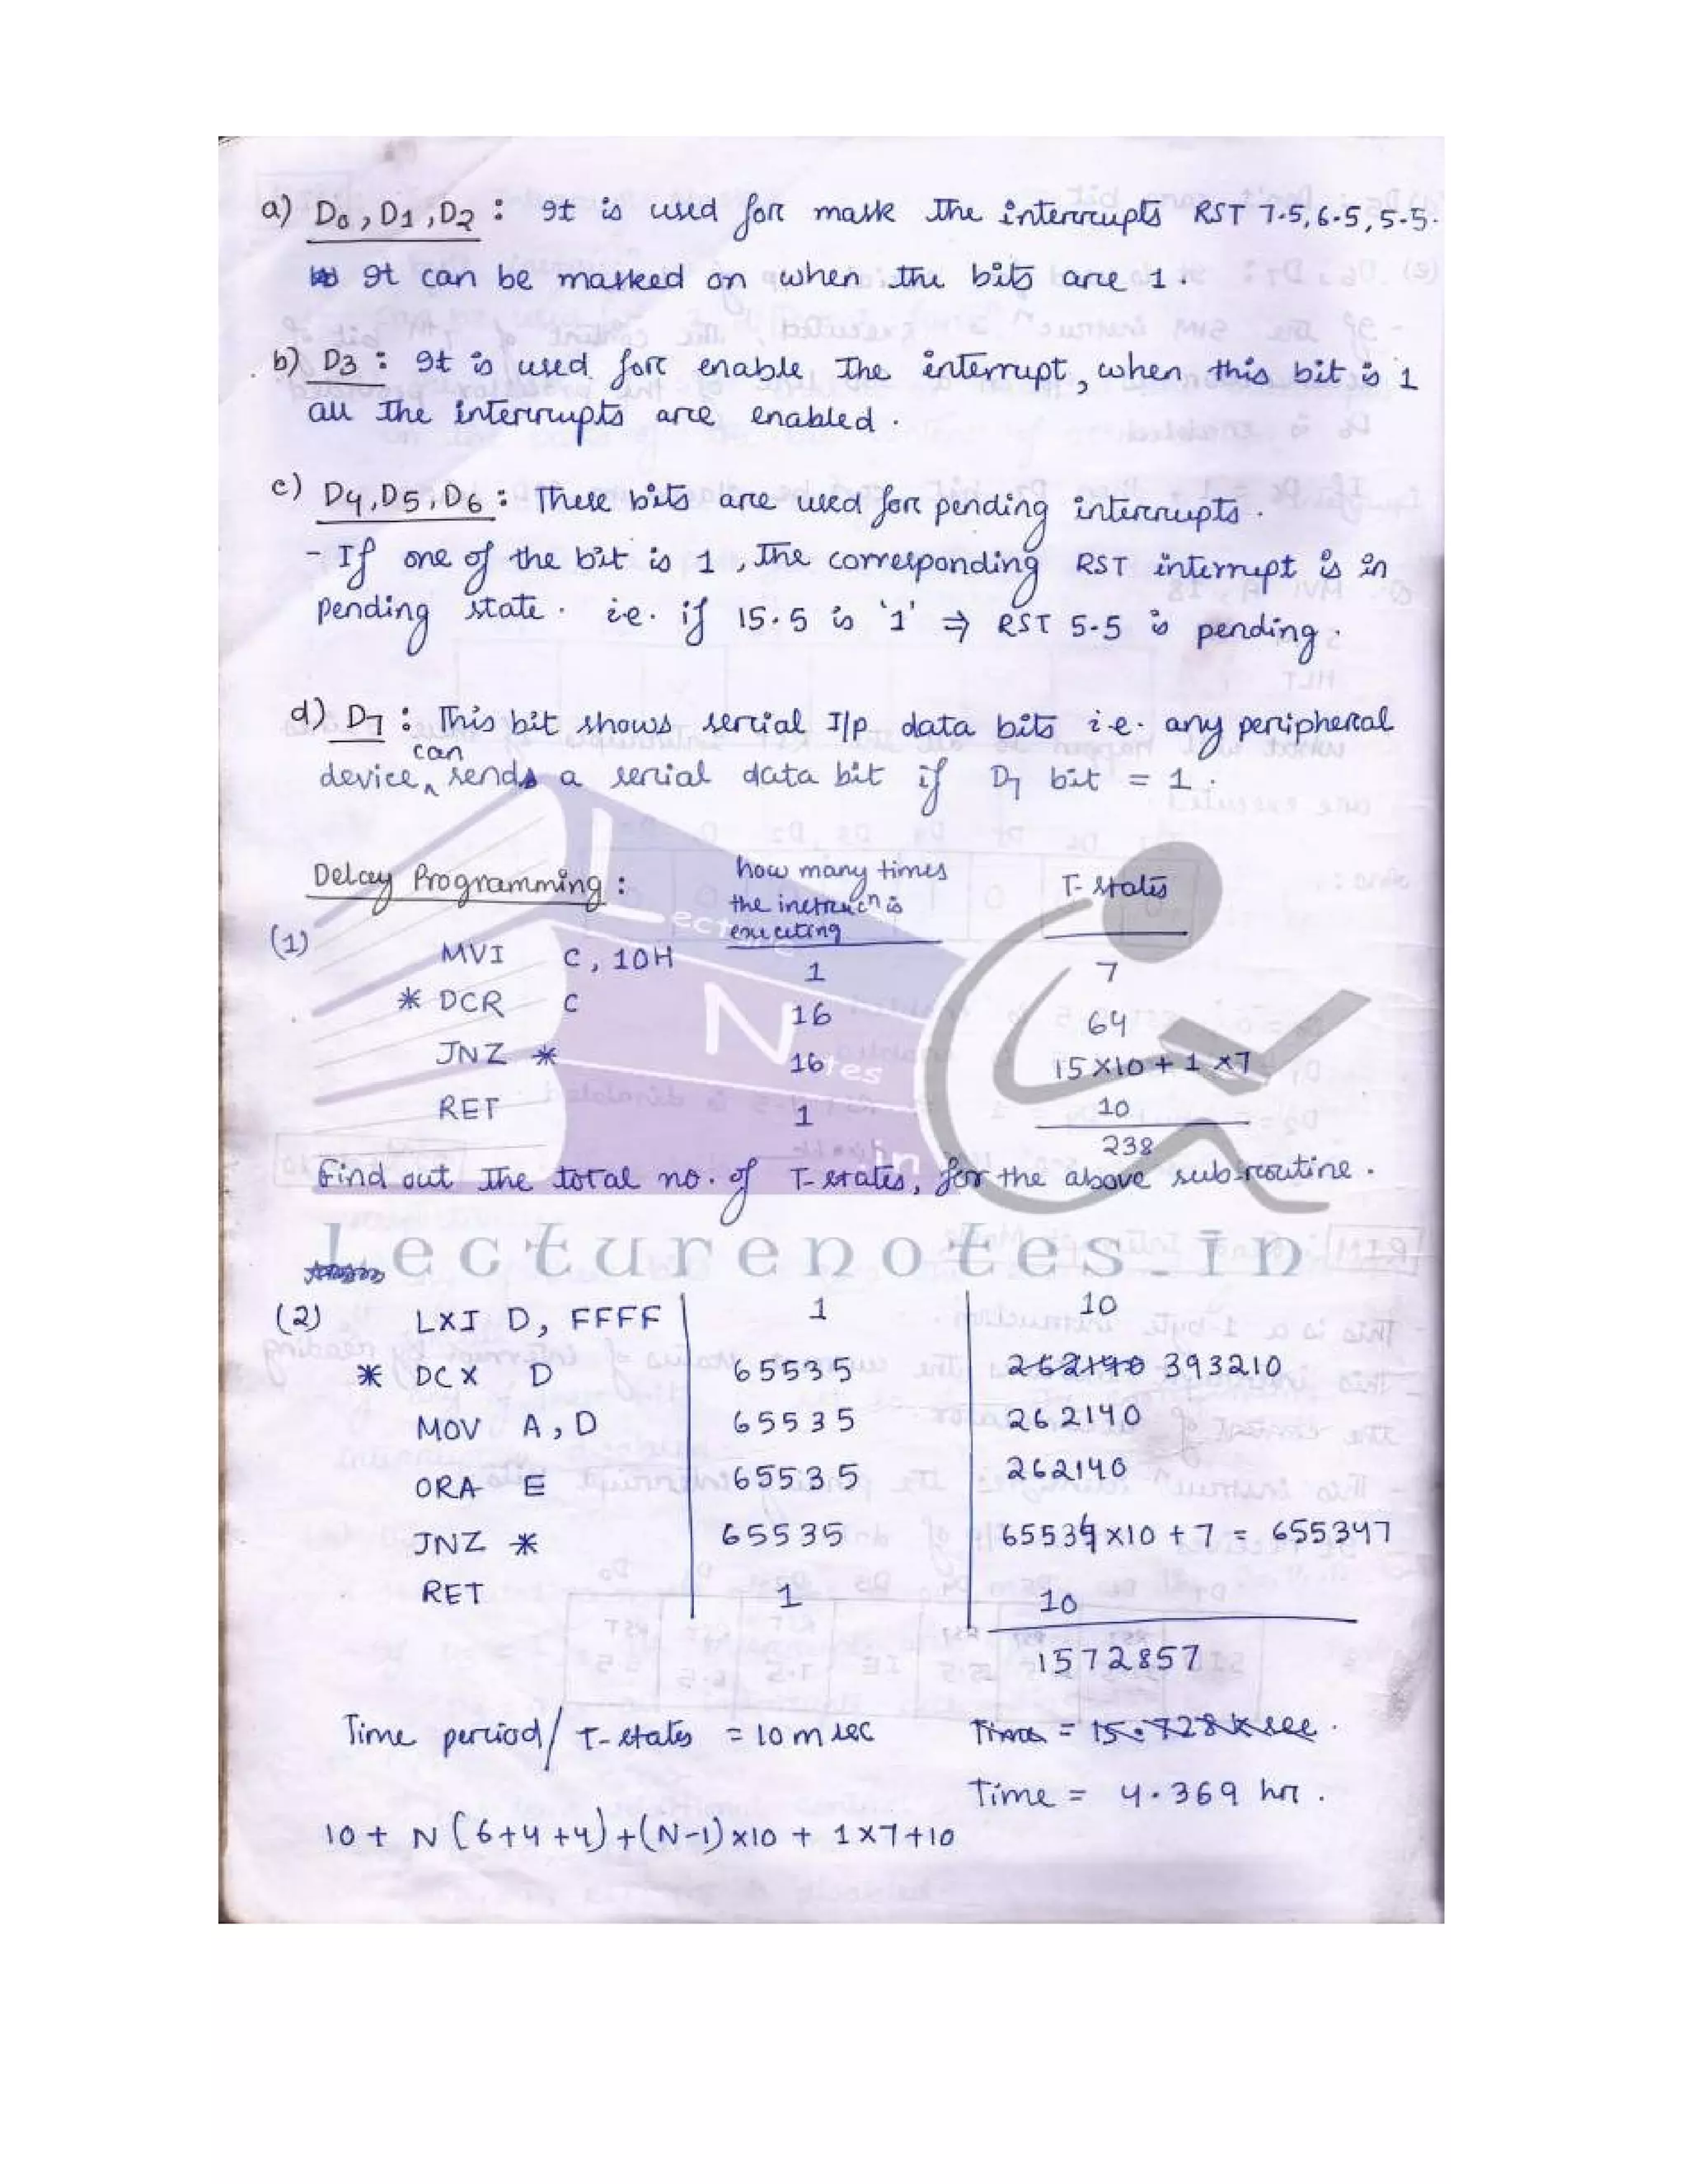 a) D0, D1, D2 : It is used for mask the interrupts RST 7.5, 6.5, 5.5.
It can be masked on when the bits are 1.
b) D3 : It is used for enable the interrupt, when this bit is 1
all the interrupts are enabled.
c) D4, D5, D6 : These bits are used for pending interrupts.
- If one of the bit is 1, the corresponding RST interrupt is in
pending state. i.e. if I5.5 is '1' ⇒ RST 5.5 is pending.
d) D7 : This bit shows serial I/p data bits i.e. any peripheral
device can sends a serial data bit if D7 bit = 1.
Delay Programming : how many times the instrucn is executing T-states
(1) MVI C, 10H 1 7
* DCR C 16 64
JNZ * 16 15 X10 + 1 X7
RET 1 10
238
Find out the total no. of T-states, for the above sub-routine.
Lecture Notes .in
Lecturenotes.in
(2) LXI D, FFFF 1 10
* DCX D 65535 262140 393210
MOV A, D 65535 262140
ORA E 65535 262140
JNZ * 65535 65534 X10 + 7 = 655347
RET 1 10
1572857
Time period / T-states = 10 m sec Time = 15.728 K sec.
Time = 4.369 hr.
10 + N (6+4+4) + (N-1) X10 + 1X7+10